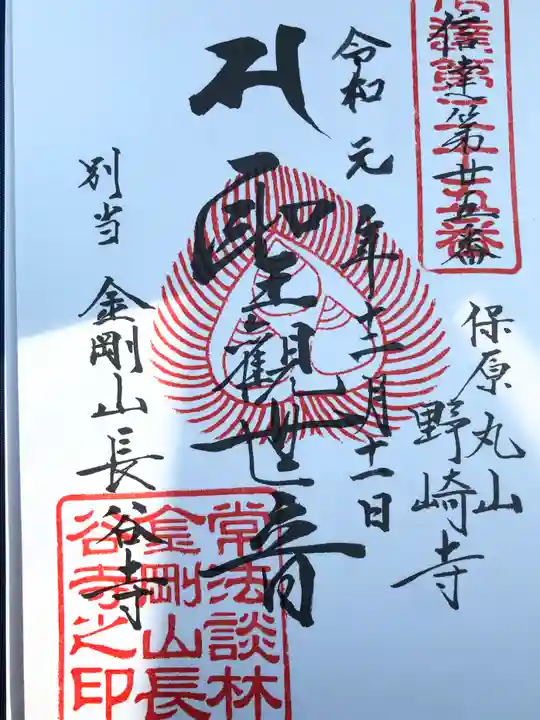 信達第廿五番
信達第二十五番
保原丸山
野崎寺
令和元年十二月十一日
聖観世音
別当 金剛山長谷寺
常法談林
金剛山長
谷寺之印